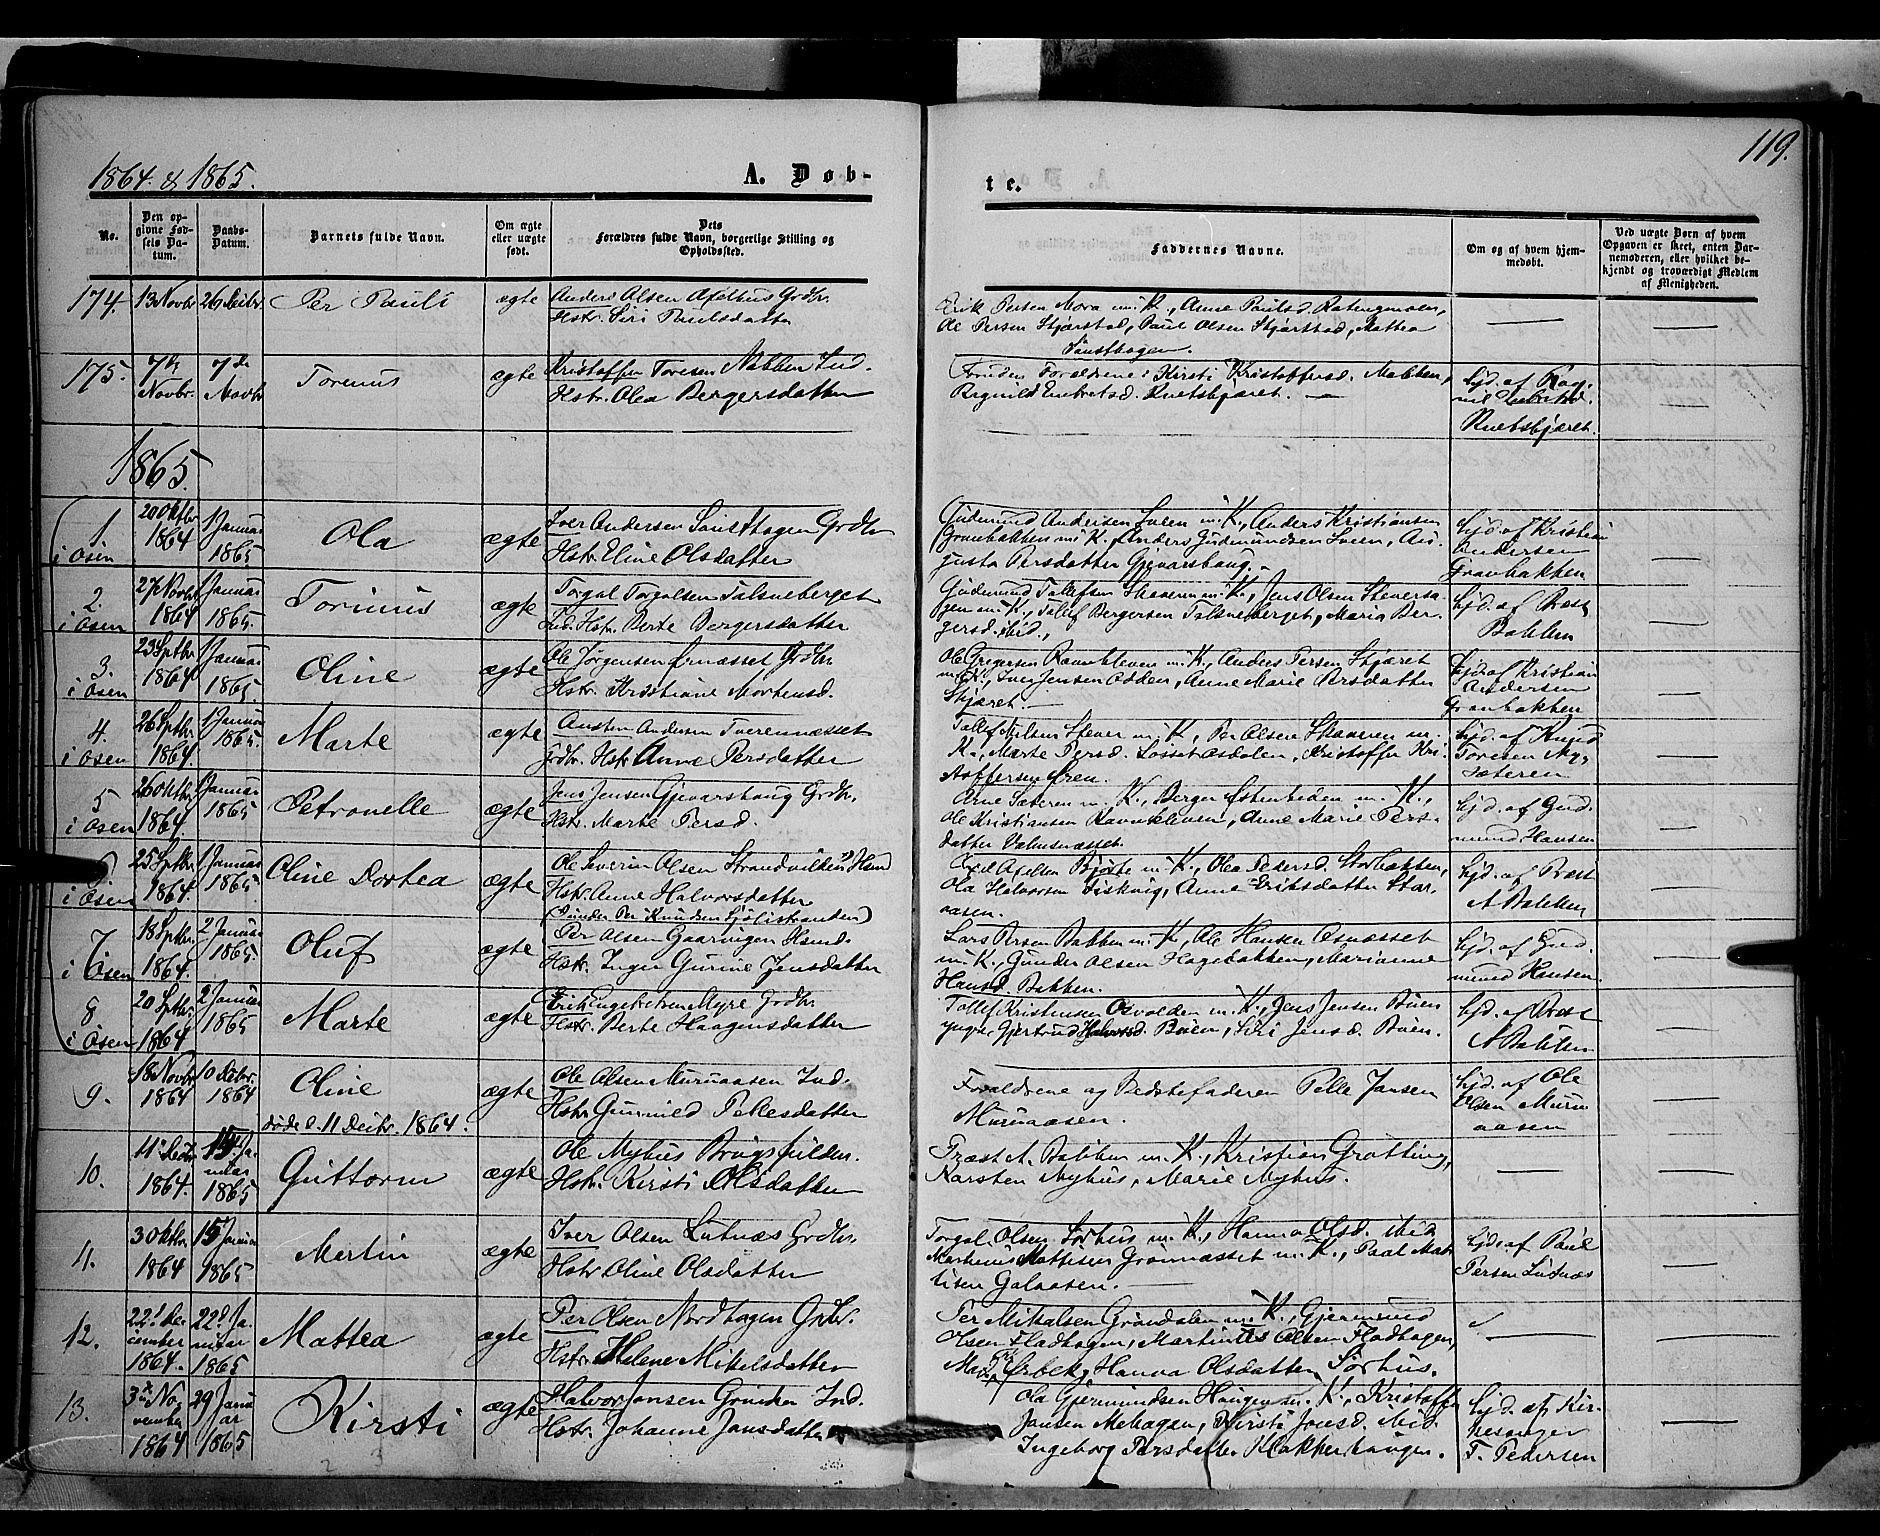 119.
1864 & 1865.
A. Døb-
te.
No.
Den op-
givne Fød-
sels Da-
tum.
Daabs-
Datum.
Barnets fulde Navn.
Om ægte
eller uægte
født.
Dets
Forældres fulde Navn, borgerlige Stilling og
Opholdssted.
Faddernes Navne.
Om og af hvem hjem-
medøbt.
Ved uægte Børn af hvem
Opgaven er skeet, enten Bar-
nemoderen, eller hvilket be-
kjendt og troværdigt Medlem
af Menigheden.
174. 13 Novbr 26 Decbr Per Pauli ægte Anders Olsen Grdbr.
Hstr. Siri Paulsdatter
Erik Persen Mora m. K., Anne Paulsd.
Ole Persen Stjærstad, Paul Olsen Stjærstad, Mattea
175. 7de Novbr. 7de Novbr Torinus ægte Kristoffer Toresen Nabben Ind.
Hstr. Olea Bergersdatter
Foruden Forældrene: Kirsti Kristoffersd. Nabben,
Ragnild Embretsd.
hjd. af Rag-
nil Embretsd.
1865.
1 i Osen 20 Oktbr 1864 1 Januar 1865 Ola ægte Iver Andersen Grdbr
Hstr. Eline Olsdatter
Gudmund Andersen Sveen m. K., Anders Kristiansen
Granbakken m. K., Anders Gudmundsen Sveen, Au-
gusta Persdatter Gjevarshaug.
hjd. af Kristian
Andersen
Granbakken
2. i Osen 27 Novbr 1864 1 Januar 1865. Torinus ægte Torgal Torgalsen Talsneberget
Ind. Hstr. Berte Bergersdatter
Gudmund Tollefsen m. K., Jens Olsen
m. K., Tollef Bergersen Talsneberget, Maria Ber-
gersd. ibid.,
hjd. af Præst
Bakken
3 i Osen 23 Sptbr 1864 1 Januar 1865 Oline ægte Ole Jørgensen Ørnæsset Grdbr
Hstr. Kristiane Mortensd.
Ole Gregersen Ravnkleven m. K., Anders Persen Skjæret
m. K., Iver Jensen Odden, Anne Marie Persdatter
Skjæret.
hjd. af Kristian
Andersen
Granbakken
4. i Osen 26 Sptbr 1864 1 Januar 1865. Marte ægte Austen Andersen Tverennæsset
Grdbr. Hstr. Anne Persdatter
Tollef Nilsen Stener m. K., Per Olsen m.
K., Marte Persd. Kristoffer Kri-
stoffersen Øren.
hjd. af Knud
Toresen Ny-
sæteren
5 i Osen 26 Oktbr 1864. 1 Januar 1865 Petronelle ægte Jens Jensen Gjevarshaug Grdbr.
Hstr. Marte Persd.
Arne Sæteren m. K., Berger Østenheden m. K.,
Ole Kristiansen Ravnkleven, Anne Marie Pers-
datter Valmsnæsset.
hjd. af Gud-
mund Hansen
6 i Osen 25 Sptbr 1864. 1 Januar 1865 Oline Dortea ægte Ole Severin Olsen Strandvikken
Hstr. Anne Halvorsdatter
Axel Axelsen m. K., Olea Pedersd. Storbakken,
Ola Halvorsen Fiskvig, Anne Eriksdatter Stor-
aasen.
hjd. af Præst
A Bakken
7 i Osen 18 Sptbr. 1864. 2 Januar 1865 Oluf ægte (Under Per Knudsen Sjølistranden)
Per Olsen Gaaringen Husmd.
Hstr. Inger Gurine Jensdatter
Lars Persen Bakken m. K., Ole Hansen Osnæsset
m. K., Gunder Olsen Hagebakken, Marianne
Hansd. Bakken.
hjd. af Gud-
mund Hansen.
8 i Osen 20 Sptbr. 1864 2 Januar 1865 Marte ægte Erik Engebretsen Myre Grdbr.
Hstr. Berte Haagensdatter
Tollef Kristensen Osvolden m. K., Jens Jensen Bøen
yngre, Gjertrud Halvorsd. Bøien, Siri Jensd. Bøien.
hjd. af Præst
A Bakken
9. 18 Novbr 1864 10 Decbr. 1864 Oline
døde d. 11 Decbr. 1864.
ægte Ole Olsen Muruaasen Ind.
Hstr Gunnild Pellesdatter
Forældrene og Bedstefaderen Pelle Jansen
Muruaasen.
hjd. af Ole
Olsen Muru-
aasen
10. 11te Decbr 1864. 15. Ja-
nuar 1865 Guttorm ægte Ole Myhus
Hstr. Kirsti Olsdatter
Præst A. Bakken m. K., Kristian Grøtting,
Karsten Myhus, Marie Myhus.
11. 3 Oktbr. 1864 15 Januar 1865 Martin ægte Iver Olsen Lutnæs Grdbr.
Hstr Oline Olsdatter
Torgal Olsen Sørhus m. K., Hanna Olsd. ibid
Marthinus Mattisen Grønnæsset m. K., Paal Mat-
tisen Galaasen.
hjd. af Paul
Persen Lutnæs
12. 22de De-
cember 1864. 22de Ja-
nuar 1865 Mattea ægte Per Olsen Nordhagen Grdbr.
Hstr. Helene Mikelsdatter
Per Mikalsen Grøndalen m. K., Gjermund
Olsen Fladhagen, Martinus Olsen Fladhagen,
Ørbek, Hanna Olsdatter Sørhus.
13. 3die No-
vember 1864 29 Janu-
ar 1865 Kirsti ægte Halvor Jansen Ind.
Hstr. Johanne Jansdatter
Ola Gjermundsen Haugen m. K., Kristoffer
Jansen Mehagen, Kirsti Joesd. ibid
Ingeborg Persdatter Klokkerhaugen.
hjd. af Kir-
kesanger
T. Pedersen